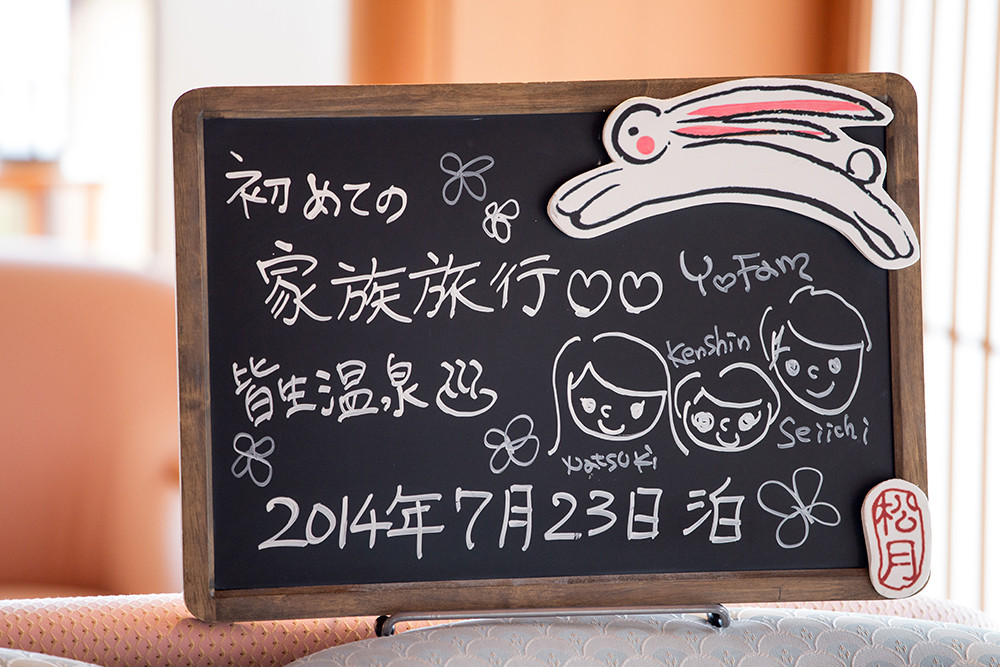 初めての
家族旅行♡♡
Y♡Fam
皆生温泉♨
Kenshin
Seiichi
Natsuki
2014年7月23日 泊
松月